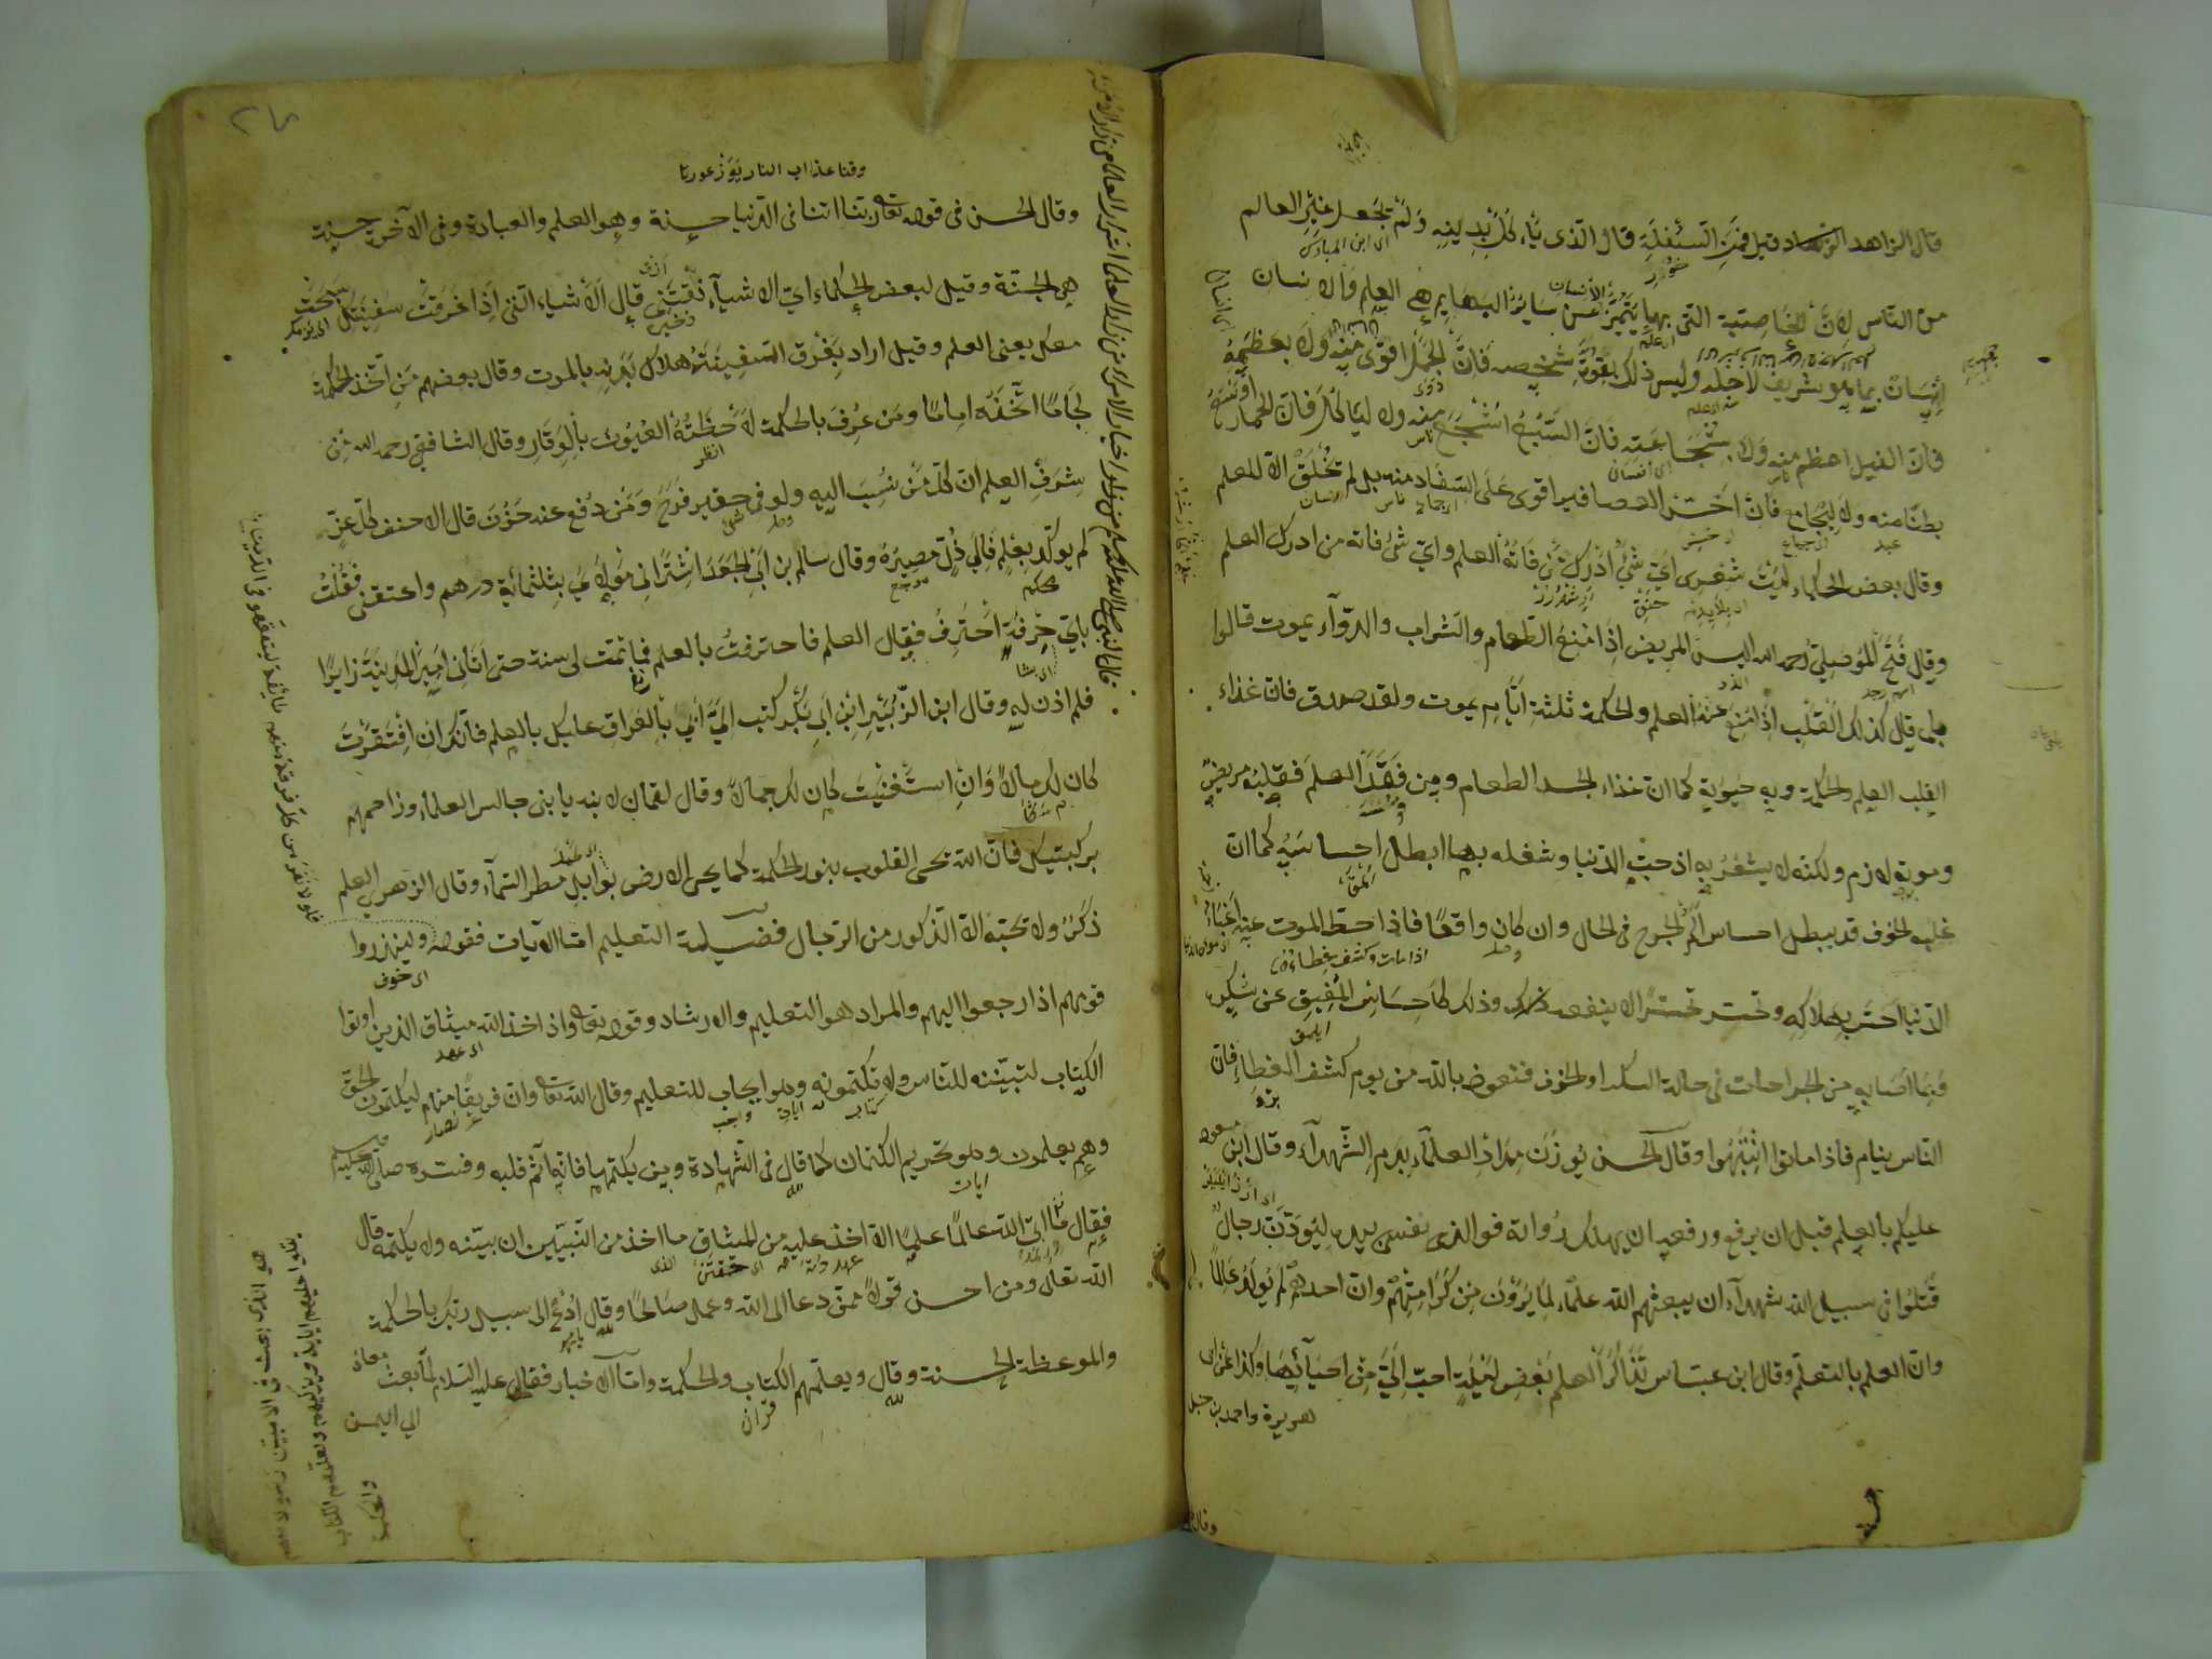 قال الزاهد الزهاد قيل فمن السفلة قال الذى يأكل بدينه ولم يجعل غير العالم
اى ابن المبارك
من الناس لان الخاصية التى بها يتميز عن سائر البهايم هى العلم والانسان
انسان بما هو شريف لاجله وليس ذلك بقوة شخصه فان الجمل اقوى منه ولا بعظمه
فان الفيل اعظم منه ولا بشجاعته فان السبع اشجع منه ولا لياكل فان الحمار اوسع
بطنا منه ولا ليجامع فان اخس العصافير اقوى على السفاد منه بل لم تخلق الا للعلم
وقال بعض الحكماء ليت شعرى اى شئ ادرك من فاته العلم واى شئ فاته من ادرك العلم
وقال فتح الموصلى رحمه الله اليس المريض اذا منع الطعام والشراب والدواء يموت قالوا
بلى قال كذلك القلب اذا منع عنه العلم والحكمة ثلثة ايام يموت ولقد صدق فان غذاء
القلب العلم والحكمة وبه حيوته كما ان غذاء الجسد الطعام ومن فقد العلم فقلبه مريض
وموته لازم ولكنه لا يشعر به اذ حب الدنيا وشغله بها ابطل احساسه كما ان
غلبه الخوف قد يبطل احساس الم الجرح فى الحال وان كان واقعا فاذا حط الموت عنه اعباء
اذا مات وكشف غطاءه
الدنيا احس بهلاكه وتحسر تحسرا لا ينفعه وذلك كاحساس المفيق عن سكره
بما اصابه من الجراحات فى حالة السكر او الخوف فنعوذ بالله من يوم كشف الغطاء فان
الناس نيام فاذا ماتوا انتبهوا وقال الحسن يوزن مداد العلماء بدم الشهداء وقال ابن مسعود
عليكم بالعلم قبل ان يرفع ورفعه ان يهلك رواته فوالذى نفسى بيده ليودن رجال
قتلوا فى سبيل الله شهداء ان يبعثهم الله علماء لما يرون من كرامتهم وان احدهم لم يولد عالما
وان العلم بالتعلم وقال ابن عباس تذاكر العلم بعض ليلة احب الى من احيائها وكذا عن ابى
هريرة واحمد بن حنبل
وقال
وقنا عذاب النار
وقال الحسن فى قوله تعالى ربنا اتنا فى الدنيا حسنة وهو العلم والعبادة وفى الآخرة حسنة
هى الجنة وقيل لبعض الحكماء اى الاشياء نقتنى قال الاشياء التى اذا غرقت سفينتك سبحت
معك يعنى العلم وقيل اراد بغرق السفينة هلاك بدنه بالموت وقال بعضهم من اتخذ الحكمة
لجاما اتخذه اماما ومن عرف بالحكمة لاحظته العيون بالوقار وقال الشافعى رحمه الله من
شرف العلم ان كل من نسب اليه ولو فى حقير فرح ومن دفع عنه حزن قال الاحنف كل عز
لم يوكد بعلم فالى ذل مصيره وقال سالم بن ابى الجعد اشترانى مولاى بثلثمائة درهم واعتقنى فقلت
باى حرفة احترف فقال العلم فاحترفت بالعلم فما تمت لى سنة حتى اتانى امير المدينة زايرا
فلم اذن له وقال ابن الزبير ابن ابى بكر كتب الى ابى بالعراق عليك بالعلم فانك ان افتقرت
كان لك مالا وان استغنيت كان لك جمالا وقال لقمان لابنه يا بنى جالس العلماء وزاحمهم
بركبتيك فان الله يحى القلوب بنور الحكمة كما يحى الارض بوابل مطر السماء وقال الزهرى العلم
ذكر ولا تحبه الا الذكور من الرجال فضيلة التعليم اما الآيات فقوله ولينذروا
قومهم اذا رجعوا اليهم والمراد هو التعليم والارشاد وقوله تعالى واذ اخذ الله ميثاق الذين اوتوا
الكتاب لتبيننه للناس ولا تكتمونه وهو ايجاب للتعليم وقال الله تعالى وان فريقا منهم ليكتمون الحق
وهم يعلمون وهو تحريم الكتمان كما قال فى الشهادة ومن يكتمها فانه آثم قلبه وفسره صلى الله عليه
فقال ما اتى الله عالما علما الا اخذ عليه من الميثاق ما اخذ من النبيين ان بينه ولا يكتمه قال
الله تعالى ومن احسن قولا ممن دعا الى الله وعمل صالحا وقال ادع الى سبيل ربك بالحكمة
والموعظة الحسنة وقال ويعلمهم الكتاب والحكمة واما الاخبار فقال عليه السلام لما بعث معاذ
الى اليمن
قال النبى صلى الله عليه وسلم
فلولا نفر من كل فرقة منهم طائفة ليتفقهوا فى الدين
هو الذى بعث فى الاميين رسولا منهم
يتلو عليهم آياته ويزكيهم ويعلمهم الكتاب
والحكمة